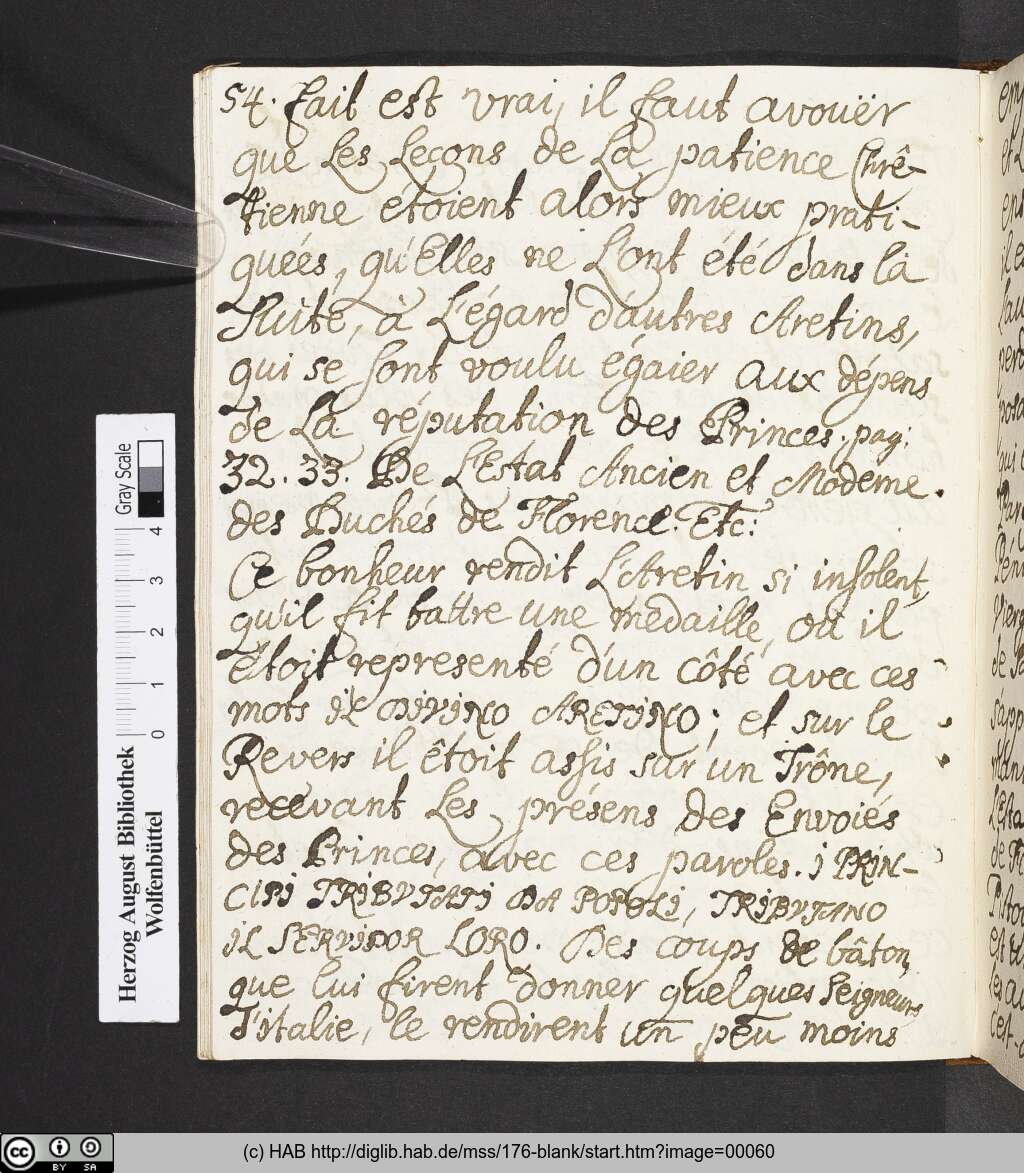 54. fait est vrai, il faut avouër
que Les Leçons de La patience Chrê-
tienne étoient alors mieux prati-
queés, qu'Elles ne L'ont été dans la
Suite, à L'égard d'autres Aretins,
qui se sont voulu égaier aux dépens
de La réputation des Princes. pag:
32. 33. De L'Estat Ancien et Moderne
des Duchés de Florence. Etc:
Ce bonheur rendit L'Aretin si insolent,
qu'il fit battre une medaille, où il
étoit representé d'un côté avec ces
mots iL DIVINO ARETINO; et sur le
Revers il êtoit assis sur un Trône,
recevant Les présens des Envoiés
des Princes, avec ces paroles. i PRIN-
CIPI TRIBVTATI DA POPOLI, TRIBVTANO
iL SERVIDOR LORO. Des coups de bâton,
que lui firent donner quelques Seigneurs
d'italie, le rendirent un peu moins
Herzog August Bibliothek
Wolfenbüttel
0 1 2 3 4
Gray Scale
(c) HAB http://diglib.hab.de/mss/176-blank/start.htm?image=00060
cc BY SA